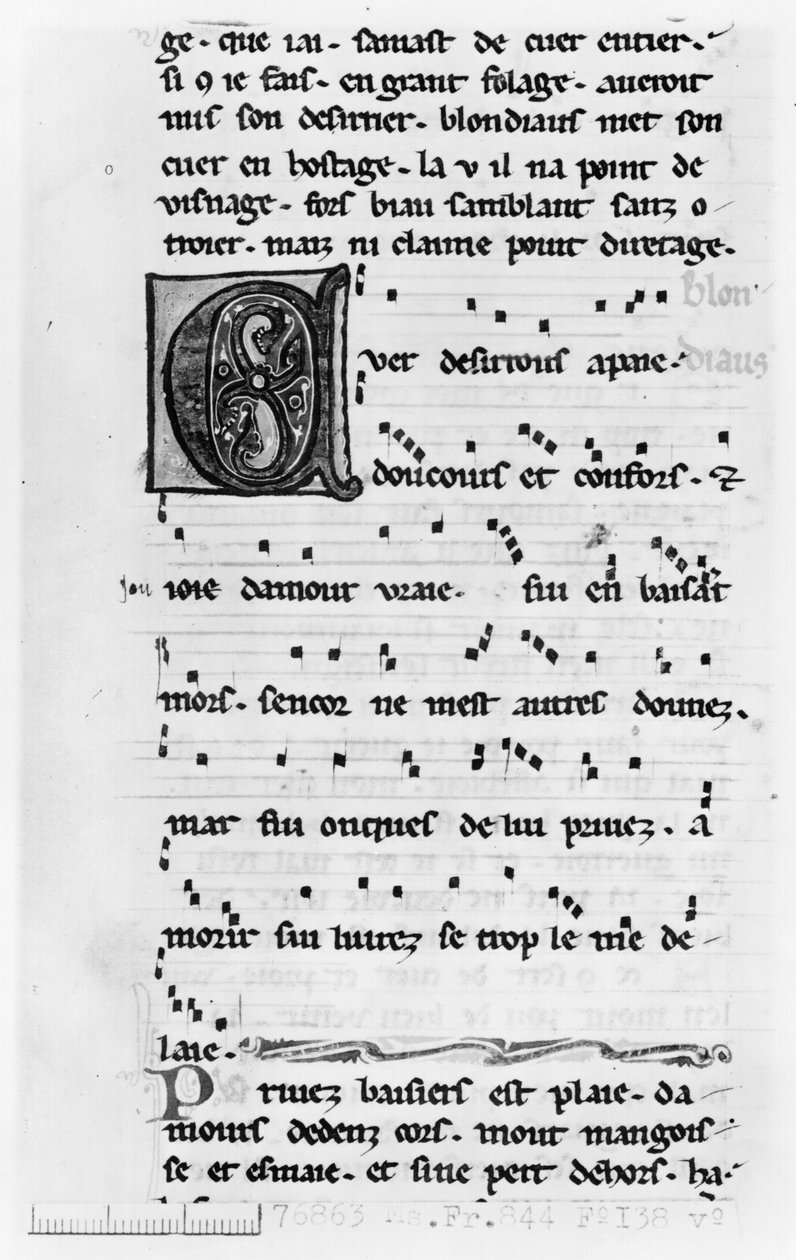 ge. que iai. samast de cuer entier.
si 9 ie fais. en grant folage. aueroit
mis son desirrier. blondiaus met son
cuer en hostage. la v il na point de
visnage. fors biau samblant sanz o
troier. maiz ni claime point diretage.
blon
Cver desirrous apaie.
diaus
doucours et confors. &
ioie damour vraie. sui en baisāt
mors. sencor ne mest autres donnez.
mar fui onques de lui priuez. a
morir sui liurez se trop le me de
laie.
Priuez baisiers est plaie. da
mours dedenz cors. mout mangois
se et esmaie. et sine pert dehors. ha
76863 Ms.Fr.844 Fº138 vº